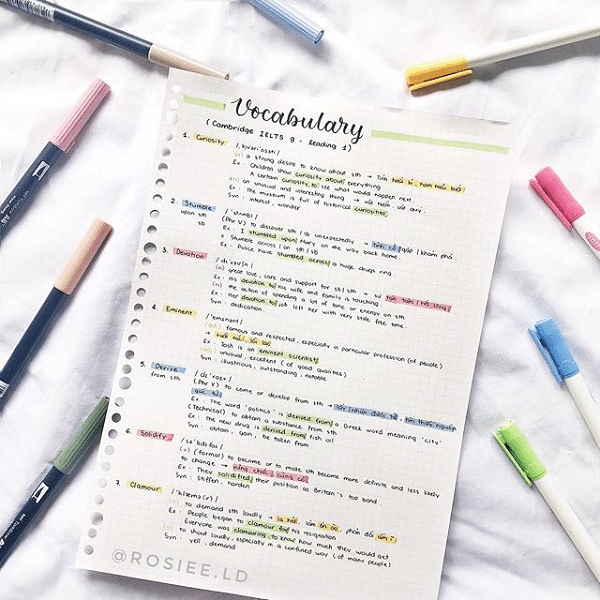 Vocabulary
(Cambridge IELTS 9 - Reading 1)
1. Curiosity /ˌkjʊəriˈɒsəti/
(n) a strong desire to know about sth → Tính hiếu kì, ham hiểu biết
Ex: Children show curiosity about everything
A certain curiosity to see what would happen next.
(n) an unusual and interesting thing → vật hiếm, vật quý.
Ex: The museum is full of historical curiosities.
Syn: interest, wonder
2. Stumble /ˈstʌmbl/
upon sth (Phr V) to discover sth/sb unexpectedly → tình cờ gặp/khám phá.
sb Ex: I stumbled upon Mary on the way back home.
Stumble across/on sth/sb
Ex: Police have stumbled across a huge drugs ring
3. Devotion /dɪˈvəʊʃn/
(n) great love, care and support for sb/sth → sự tận tâm/hết lòng
Ex: His devotion to his wife and family is touching.
(n) the action of spending a lot of time or energy on sth
Ex: Her devotion to job left her with very little free time.
Syn: dedication
4. Eminent /ˈemɪnənt/
famous and respected, especially in particular profession (of people)
→ xuất sắc, lỗi lạc
Ex: Josh is an eminent scientist
unusual, excellent (of good qualities)
Syn: illustrious, outstanding, notable
5. Derive /dɪˈraɪv/
from sth (Phr V) to come or develop from sth → bắt nguồn từ
Ex: The word 'politics' is derived from a Greek word meaning 'city'
(Technical) to obtain a substance from sth
Ex: The new drug is derived from fish oil
Syn: obtain, gain, be taken from
6. Solidify /səˈlɪdɪfaɪ/
(v) (formal) to become or to make sth become more definite and less likely
to change → vững chắc, củng cố
Ex: They solidified their position as Britain's top band.
Syn: stiffen, harden
7. Clamour /ˈklæmə(r)/
to demand sth loudly → la hét, làm ồn ào, phản đối ầm ĩ
Ex: People began to clamour for his resignation
Everyone was clamouring to know how much they would get
to shout loudly, especially in a confused way (of many people)
Syn: yell, demand
@ROSIEE.LD